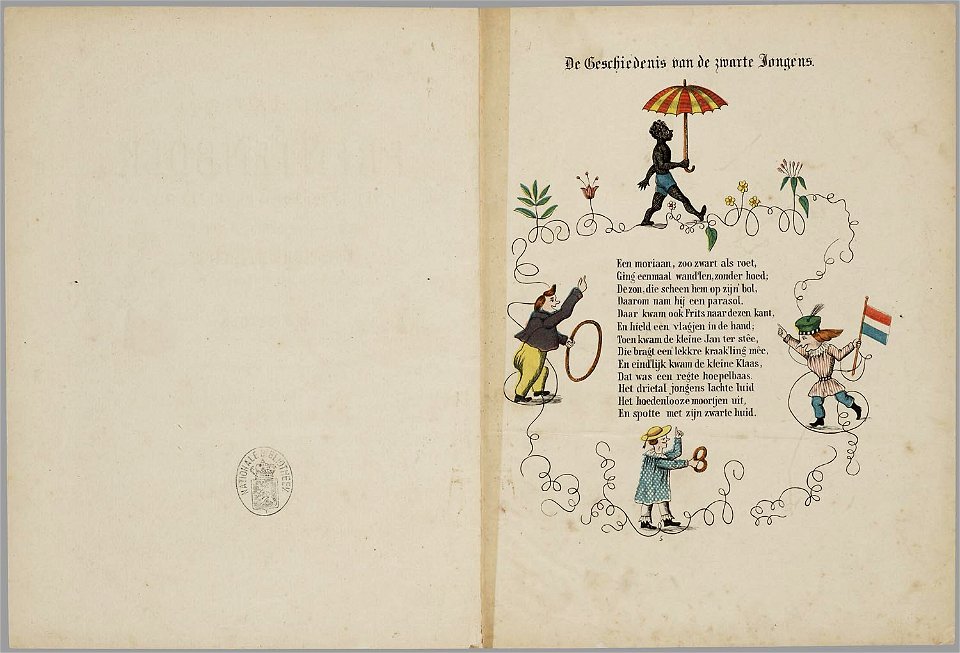 De Geschiedenis van de zwarte Jongens.
Een moriaan, zoo zwart als roet,
Ging eenmaal wand'len, zonder hoed;
De zon, die scheen hem op zijn' bol,
Daarom nam hij een parasol.
Daar kwam ook Frits naar dezen kant,
En hield een vlagjen in de hand;
Toen kwam de kleine Jan ter stêe,
Die bragt een' lekkre kraak'ling mêe,
En eind'lijk kwam de kleine Klaas,
Dat was een regte hoepelbaas.
Het drietal jongens lachte luid
Het hoedenlooze moortjen uit,
En spotte met zijn zwarte huid.
5
NATIONALE BIBLIOTHEEK